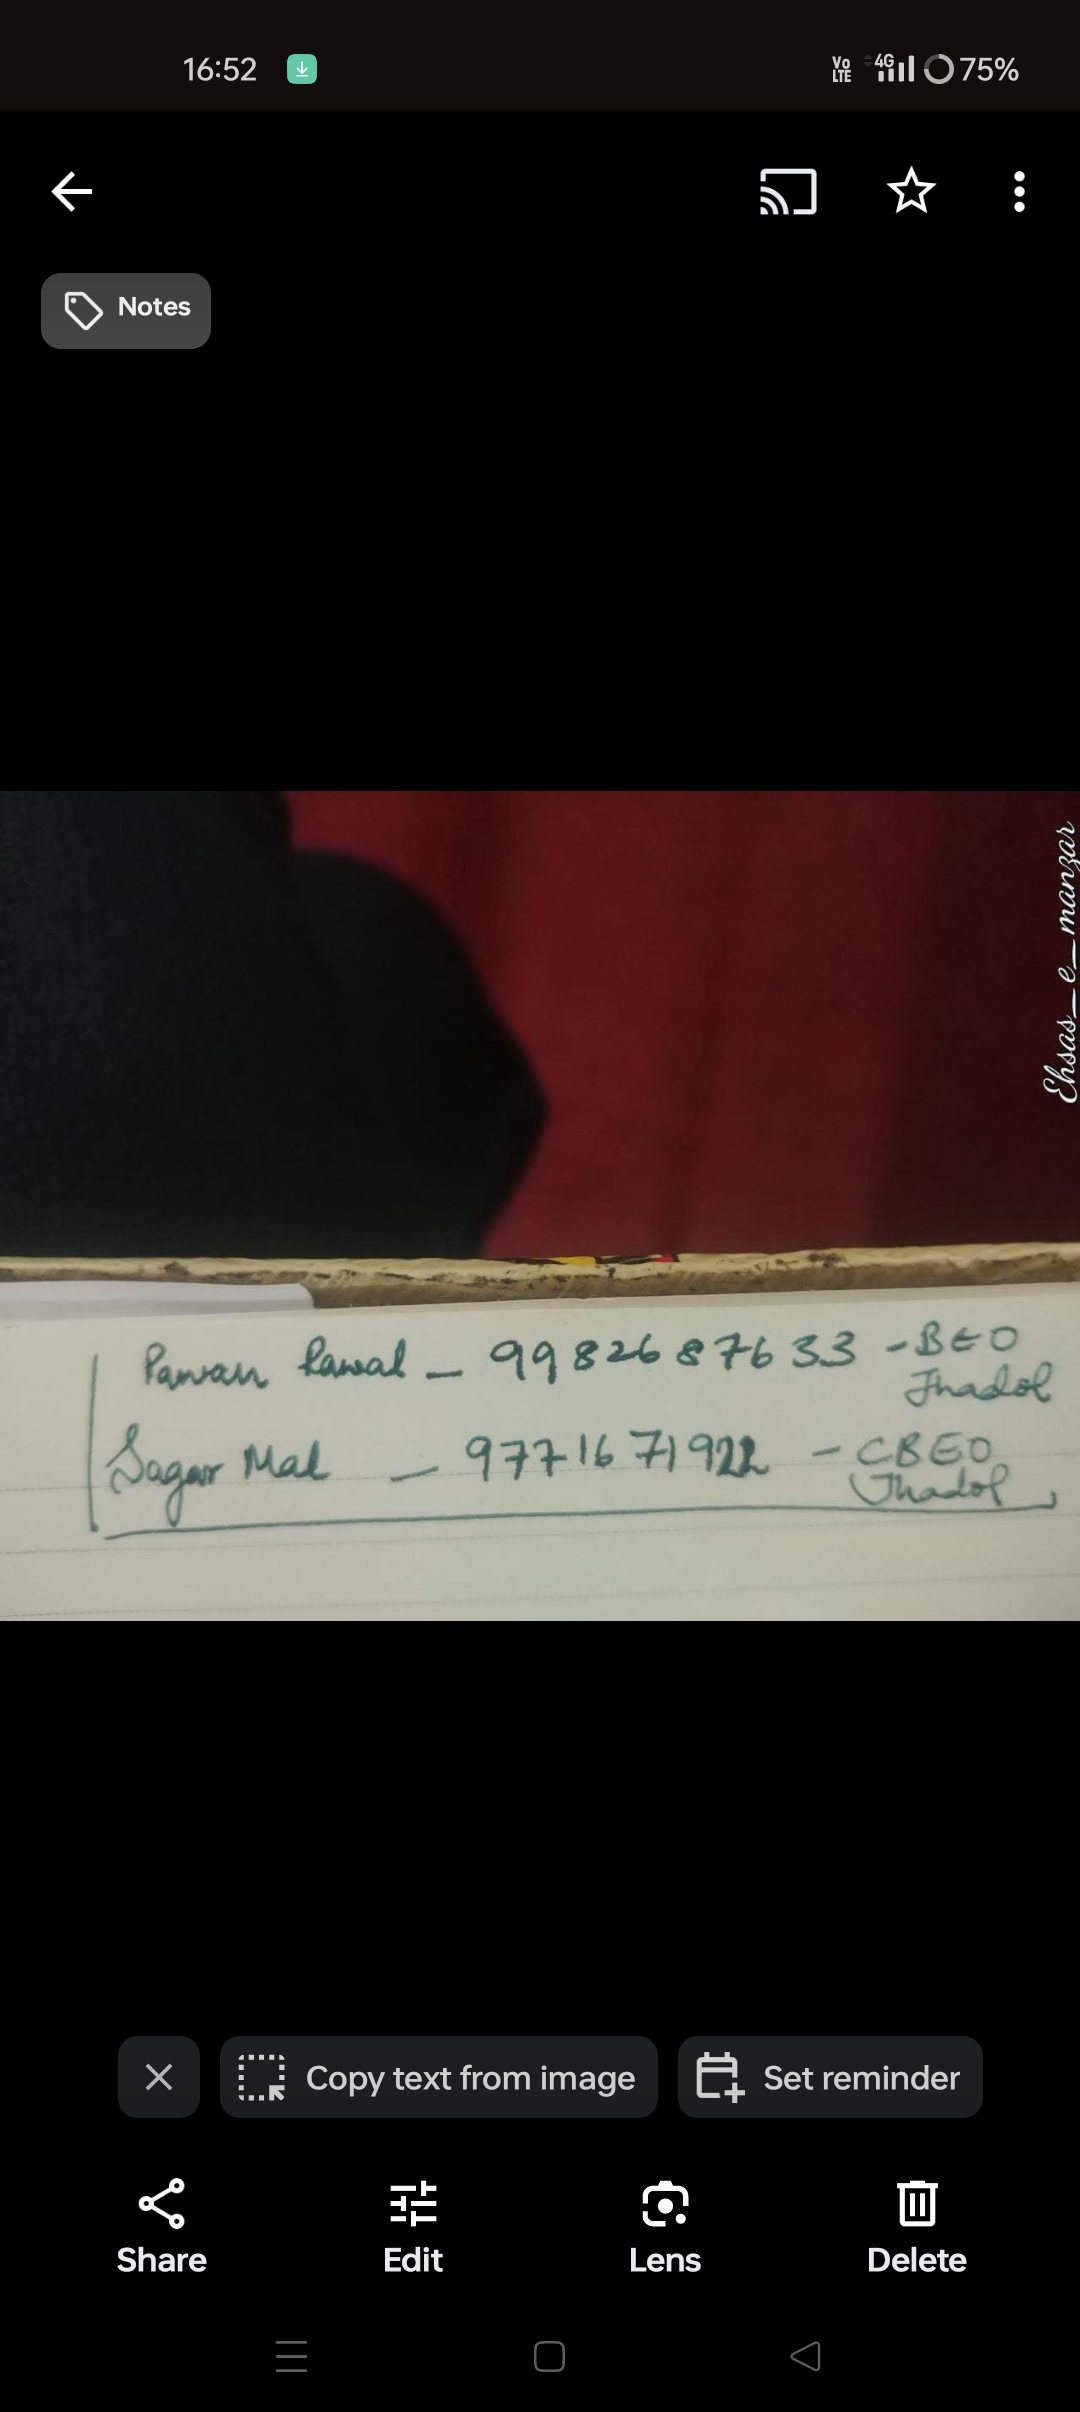 16:52
Vo LTE 4G 75%
Notes
Ehsas_e_manzar
Pawan Rawal - 9982687633 - BEO
Jhadol
Sagar Mal - 9771671922 - CBEO
Jhadol
Copy text from image
Set reminder
Share Edit Lens Delete